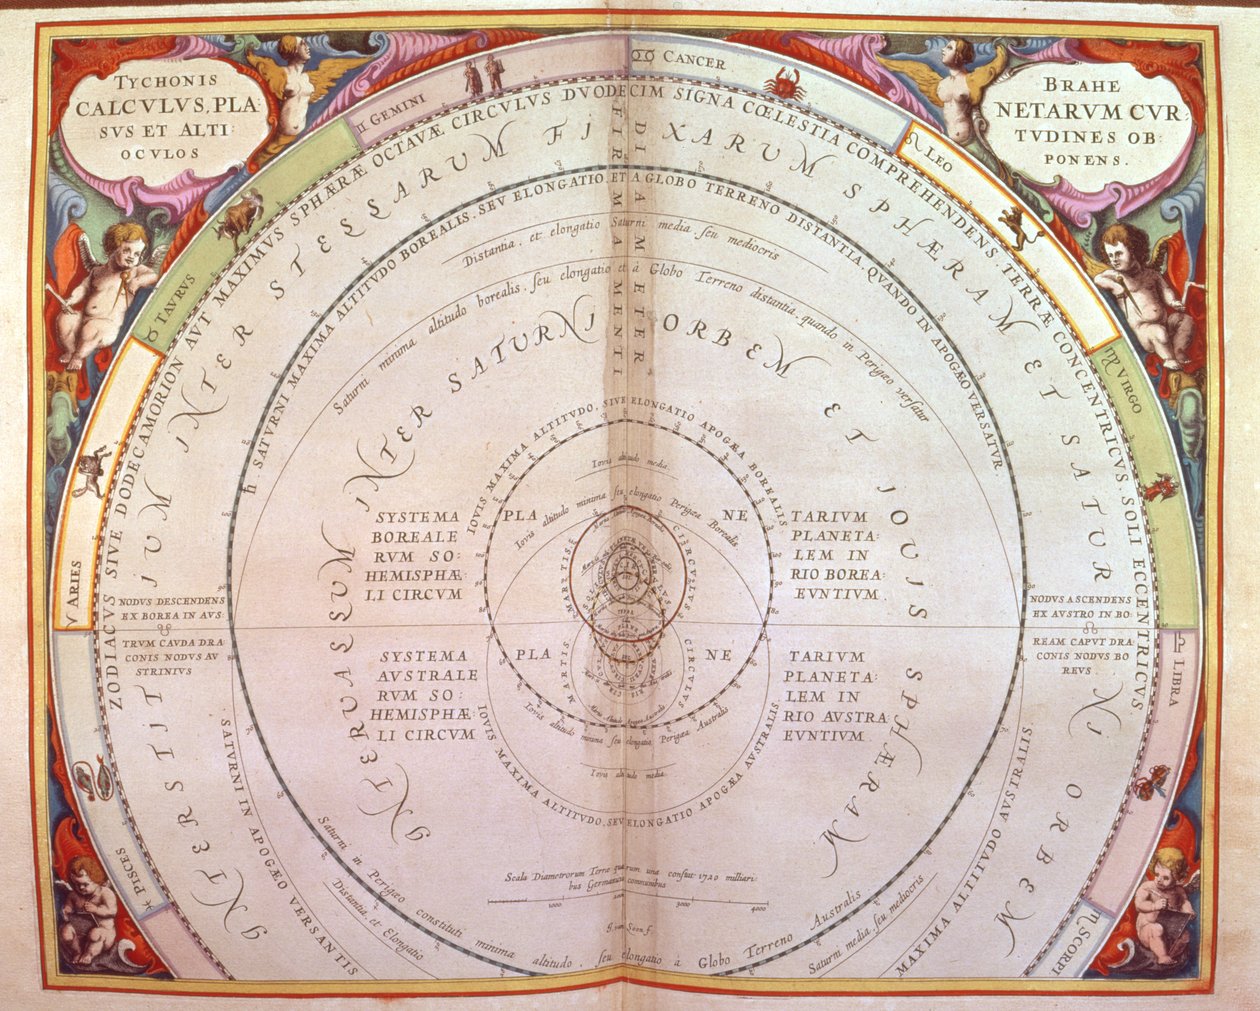 TYCHONIS
CALCVLVS, PLA:
SVS ET ALTI:
OCVLOS
BRAHE
NETARVM CVR:
TVDINES OB:
PONENS.
♊ GEMINI
♋ CANCER
♌ LEO
♍ VIRGO
♎ LIBRA
♏ SCORPI
♉ TAURUS
♈ ARIES
PISCES
ZODIACVS SIVE DODECAMORION AVT MAXIMVS SPHÆRÆ OCTAVÆ CIRCVLVS DVODECIM SIGNA CŒLESTIA COMPREHENDENS, TERRÆ CONCENTRICVS, SOLI ECCENTRICVS
JNTERSTJTJUM JNTER STELLARUM FJXARUM SPHÆRAM ET SATURNJ ORBEM
FIRMAMENTI
DIAMETER
♄ SATURNI MAXIMA ALTITUDO BOREALIS, SEV ELONGATIO ET A GLOBO TERRENO DISTANTIA, QUANDO IN APOGÆO VERSATVR
Distantia, et elongatio Saturni media seu mediocris
Saturni minima altitudo borealis, seu elongatio et à Globo Terreno distantia, quando in Perigæo versatur
JNTERCAPEDO JNTER SATURNJ ORBEM ET JOUJS SPHÆRAM
IOVIS MAXIMA ALTITVDO, SIVE ELONGATIO APOGÆA BOREALIS
Iovis altitudo media
Iovis altitudo minima seu elongatio Perigæa Borealis
SYSTEMA PLANETARIVM
BOREALE PLANETA:
RVM SO: LEM IN
HEMISPHÆ: RIO BOREA:
LI CIRCVM EVNTIVM
MARTIS CIRCVITVS
NODVS DESCENDENS
EX BOREA IN AVS:
TRVM CAVDA DRA:
CONIS NODVS AV
STRINIVS
NODVS ASCENDENS
EX AUSTRO IN BO:
REAM CAPVT DRA:
CONIS NODVS BO
REUS.
SYSTEMA PLANETARIVM
AVSTRALE PLANETA:
RVM SO: LEM IN
HEMISPHÆ: RIO AVSTRA:
LI CIRCVM EVNTIVM
MARTIS CIRCVITVS
Iovis altitudo minima seu elongatio Perigæa Australis
Iovis altitudo media
IOVIS MAXIMA ALTITVDO, SEV ELONGATIO APOGÆA AVSTRALIS
Scala Diametrorum Terra quarum una constat 1720 milliari:
bus Germanicis communibus
1000 2000 3000 4000
G. van Loon f.
Saturni in Perigæo constituti minima altitudo, seu elongatio à Globo Terreno Australis
Distantia, et Elongatio
Saturni media, seu mediocris
SATVRNI IN APOGÆO VERSANTIS
MAXIMA ALTITVDO AVSTRALIS